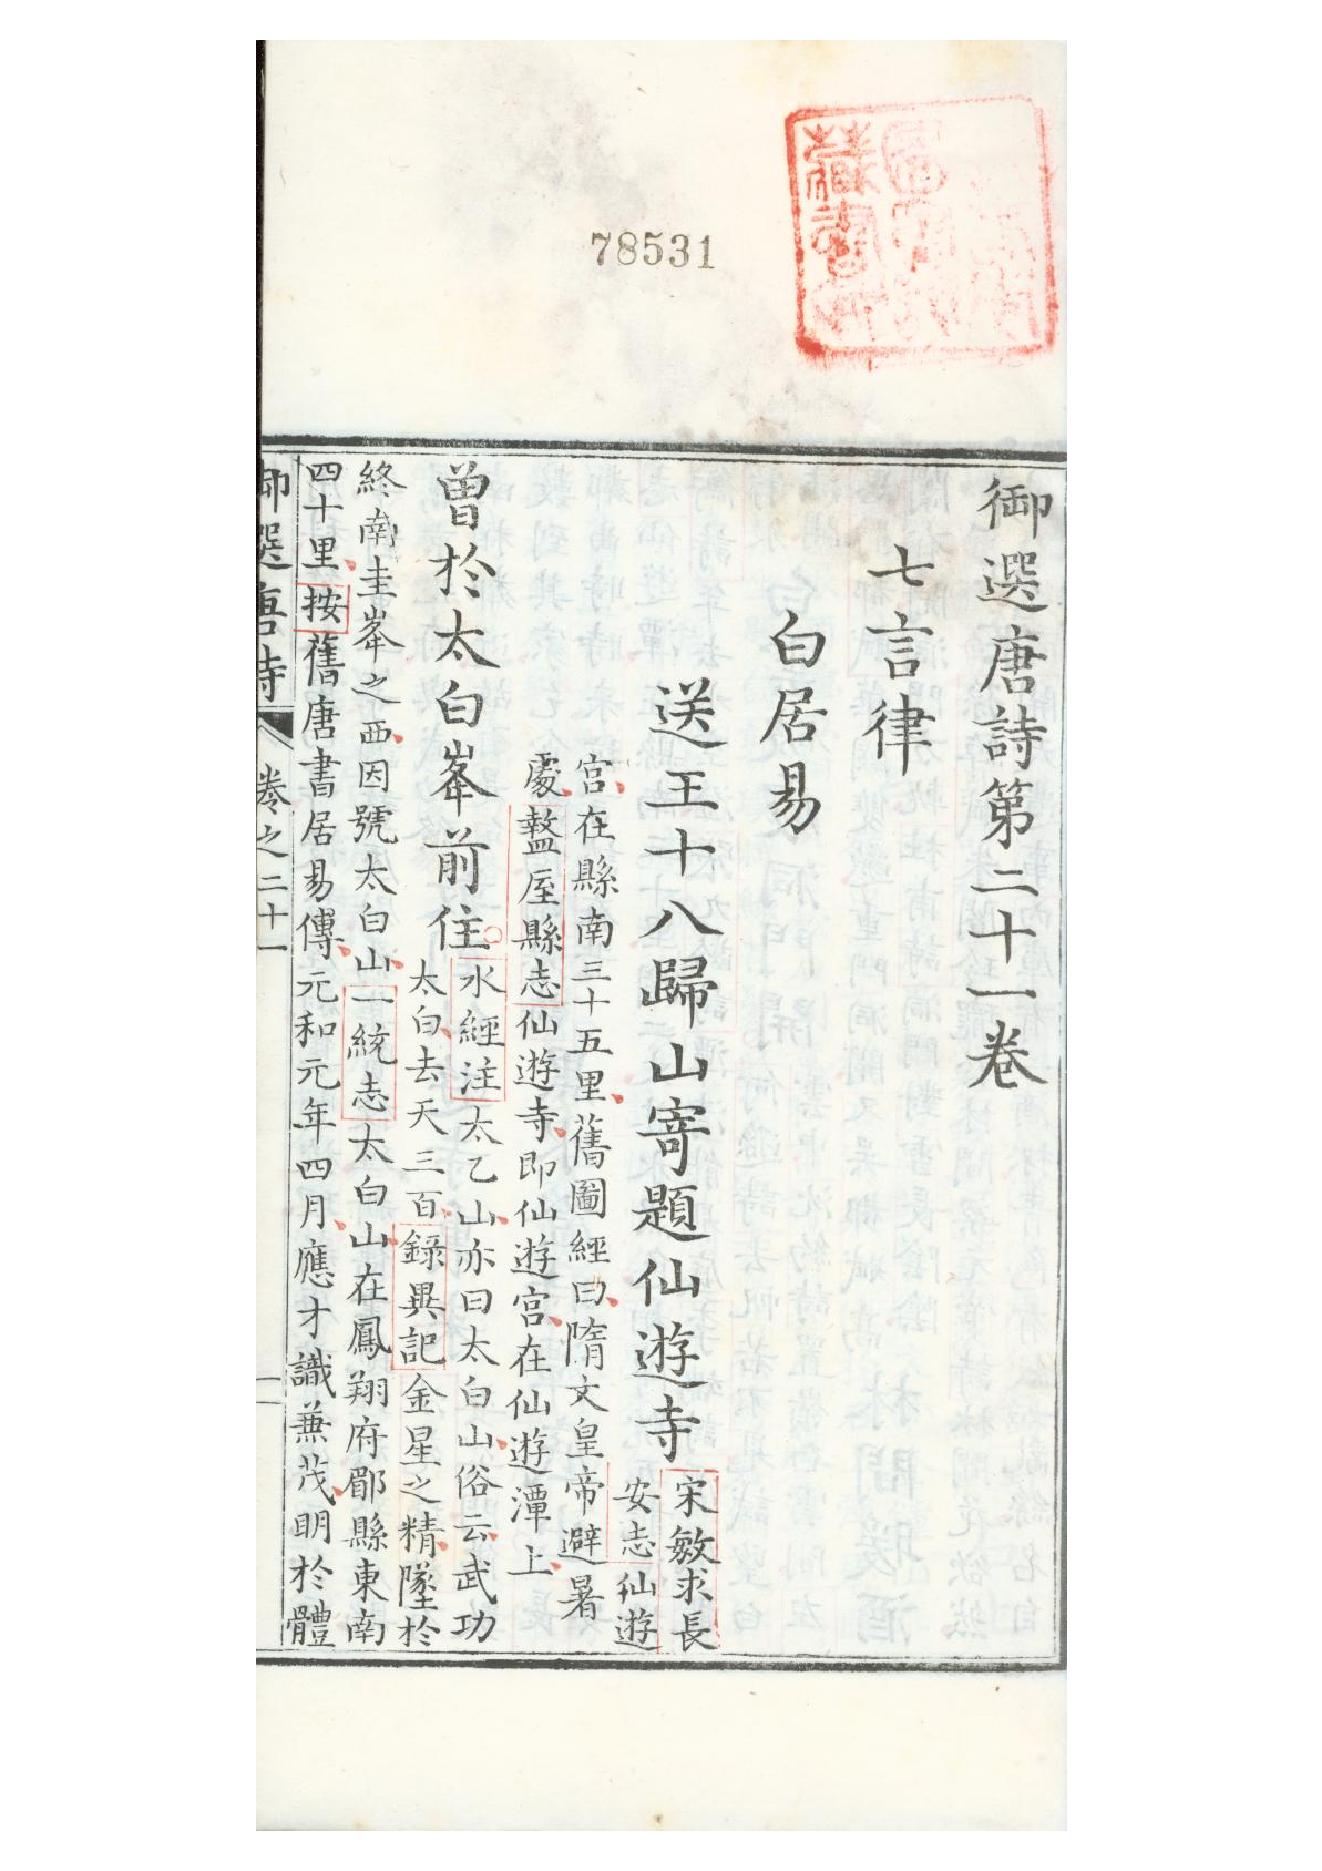 78531
御選唐詩第二十一卷
七言律
白居易
送王十八歸山寄題仙遊寺
宋敏求長
安志仙遊
宮在縣南三十五里舊圖經曰隋文皇帝避暑
處盩厔縣志仙遊寺即仙遊宮在仙遊潭上
曾於太白峯前住
水經注太乙山亦曰太白山俗云武功
太白去天三百錄異記金星之精墜於
終南圭峯之西因號太白山一統志太白山在鳳翔府郿縣東南
四十里按舊唐書居易傳元和元年四月應才識兼茂明於體
御選唐詩
卷之二十一
一